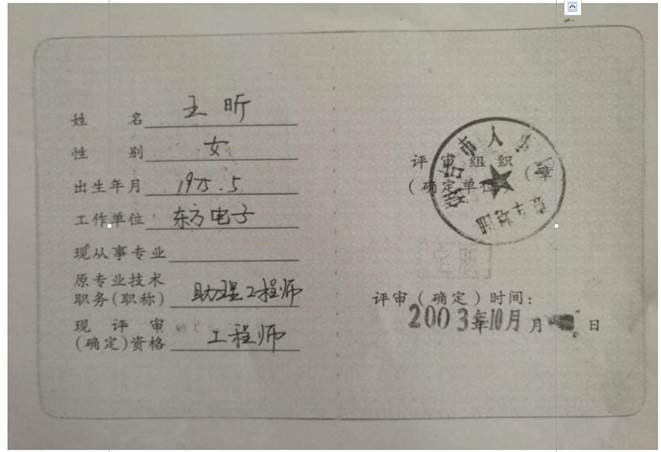 姓 名 王昕
性 别 女
出生年月 1975.5
工作单位 东方电子
现从事专业
原专业技术
职务(职称) 助理工程师
现 评 审
(确定)资格 工程师
评 审 组 织
(确定单位)
烟台市人事局
评审(确定)时间:
2003年10月 月 日